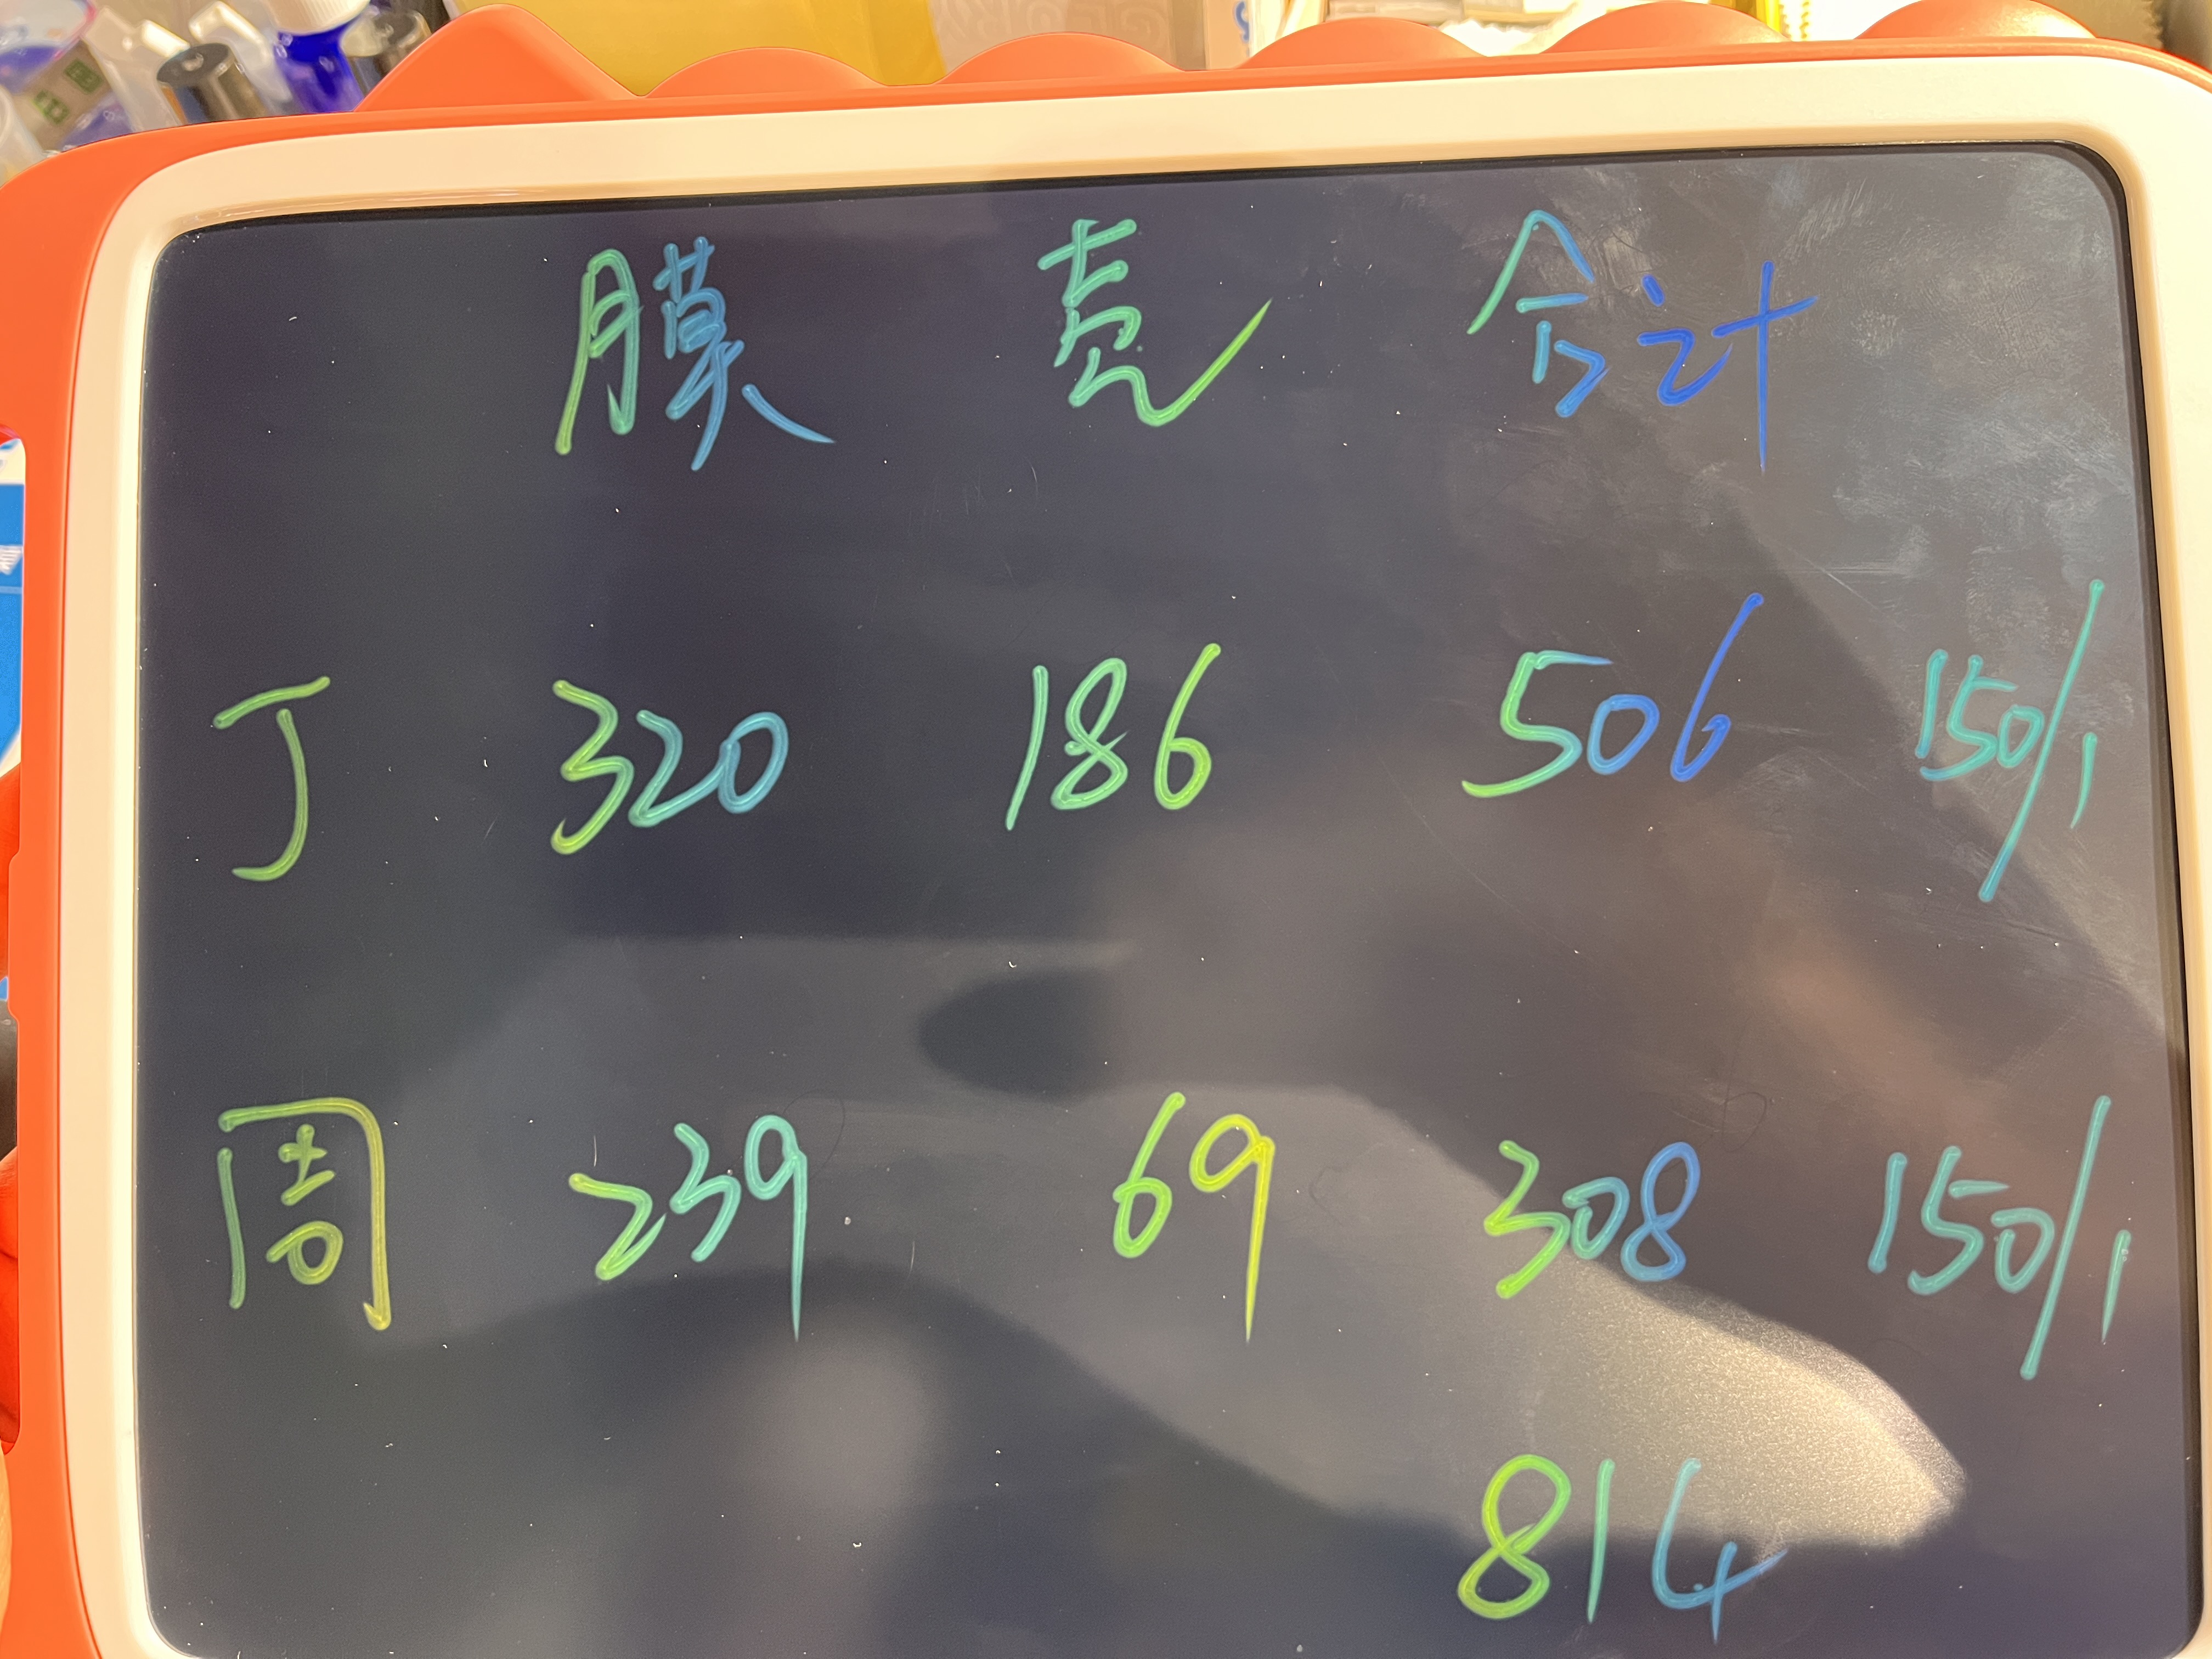 膜 壳 合计
丁 320 186 506 150/1
周 239 69 308 150/1
814